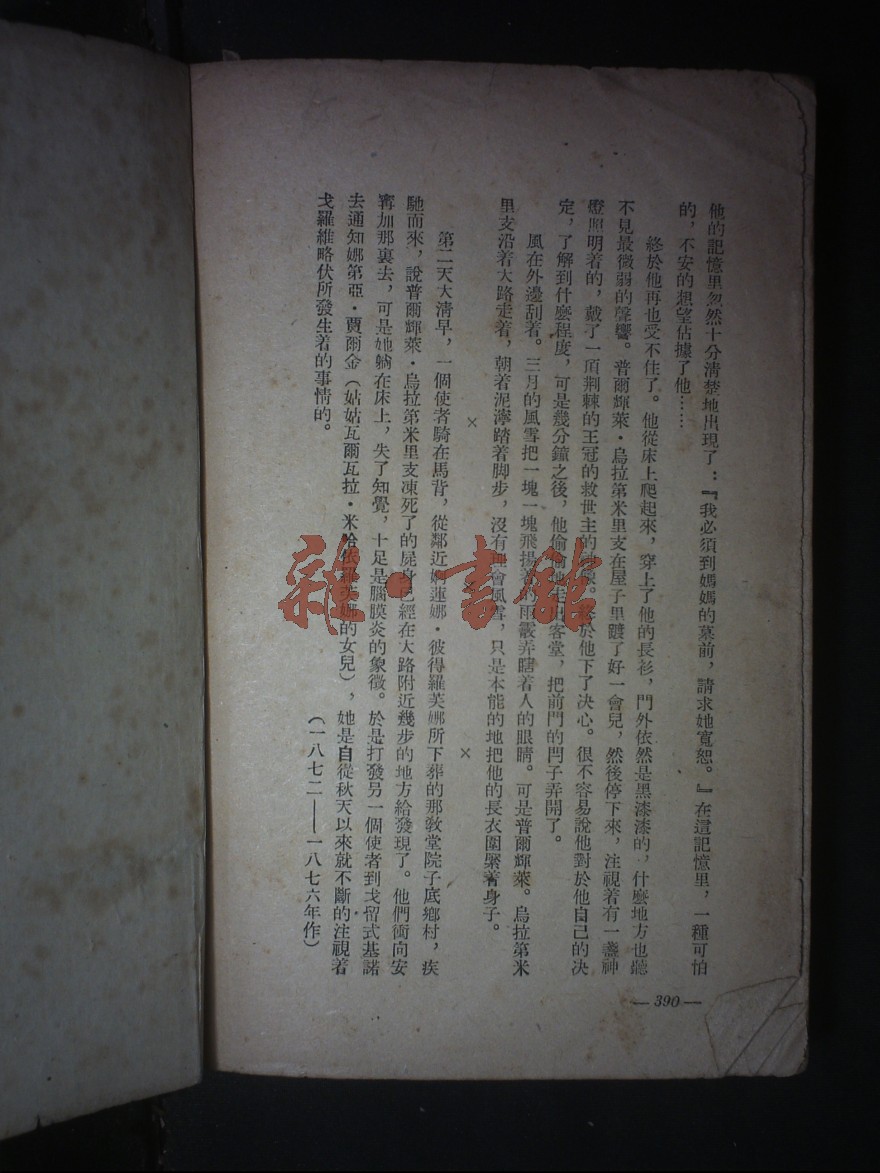 他的記憶里忽然十分清楚地出現了：『我必須到媽媽的墓前，請求她寬恕。』在這記憶里，一種可怕
的，不安的想望佔據了他……
終於他再也受不住了。他從床上爬起來，穿上了他的長衫，門外依然是黑漆漆的，什麼地方也聽
不見最微弱的聲響。普爾輝萊·烏拉第米里支在屋子里踱了好一會兒，然後停下來，注視着有一盞神
燈照明着的，戴了一頂荆棘的王冠的救世主的。終於他下了决心。很不容易說他對於他自己的决
定，了解到什麼程度，可是幾分鐘之後，他偷偷地走出客堂，把前門的閂子弄開了。
風在外邊刮着。三月的風雪把一塊一塊飛揚着的雨霰弄瞎着人的眼睛。可是普爾輝萊。烏拉第米
里支沿着大路走着，朝着泥濘踏着脚步，沒有理會風雪，只是本能的地把他的長衣圍緊着身子。
× × ×
第二天大清早，一個使者騎在馬背，從鄰近她蓮娜·彼得羅芙娜所下葬的那教堂院子底鄉村，疾
馳而來，說普爾輝萊·烏拉第米里支凍死了的屍身已經在大路附近幾步的地方給發現了。他們衝向安
寗加那裏去，可是她躺在床上，失了知覺，十足是腦膜炎的象徵。於是打發另一個使者到戈留式基諾
去通知娜第亞·賈爾金（姑姑瓦爾瓦拉·米哈依羅芙娜的女兒），她是自從秋天以來就不斷的注視着
戈羅維略伏所發生着的事情的。
（一八七二——一八七六年作）
— 390 —
雜·書館